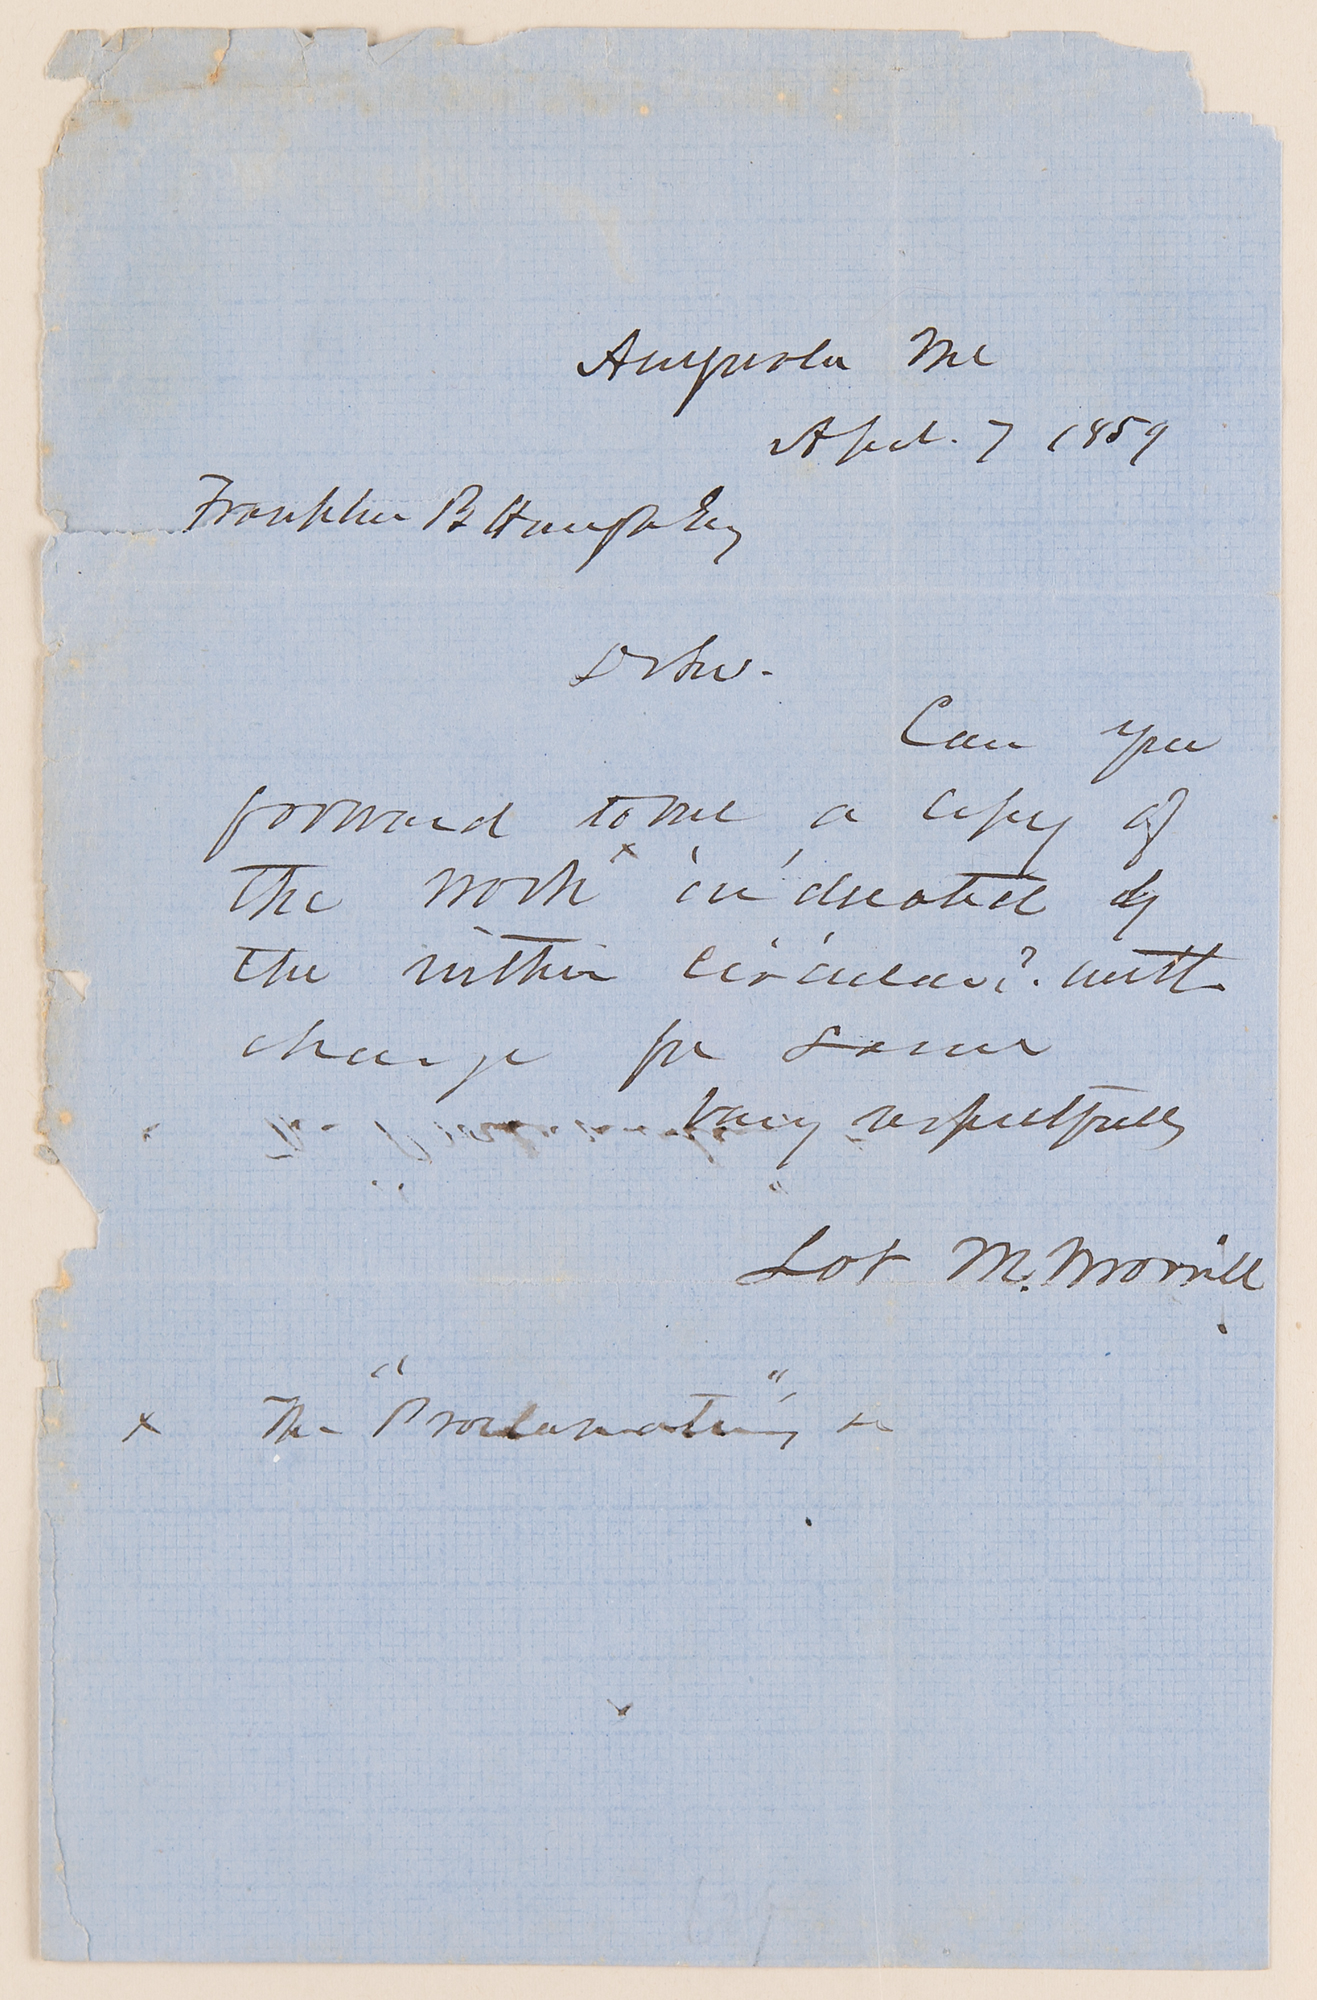 Augusta Me
Apl. 7 1859
Franklin B Hough Esq
D Sir.
Can you
forward to me a copy of
the work x indicated by
the within circular? with
charge for same
Very respectfully
Lot M. Morrill
x The "Proclamations"